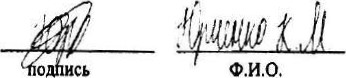 Юрченко К.М
подпись Ф.И.О.